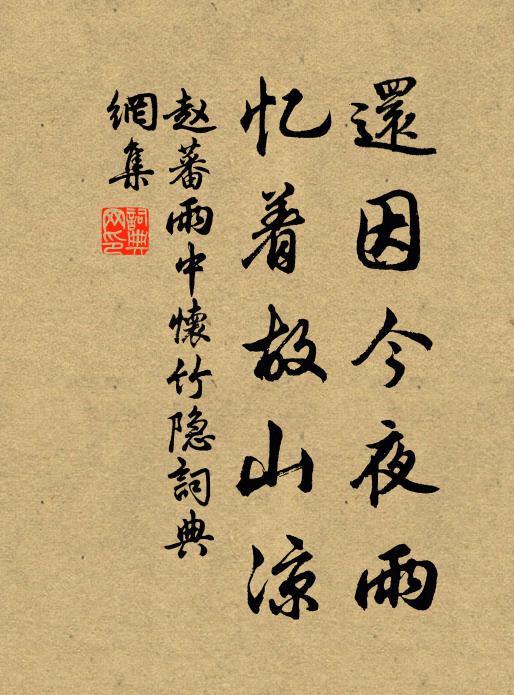 還因今夜雨
忆着故山凉
赵蕃雨中懷竹隐詞典
網集
詞典網印